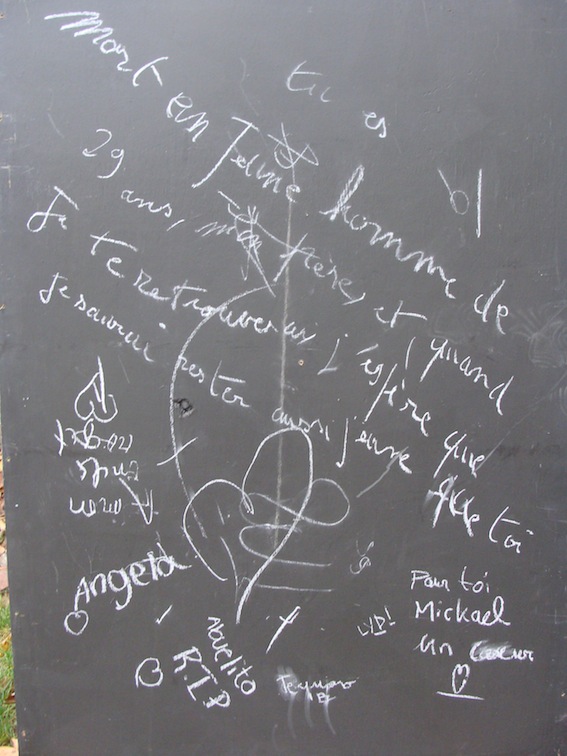 tu es
Mort en Jeune homme de
29 ans, mon frère, et quand
Je te retrouverais j'espère que
Je saurai rester aussi jeune que toi
Angela
Abuelito
R.I.P
Pour toi
Mickael
un coeur